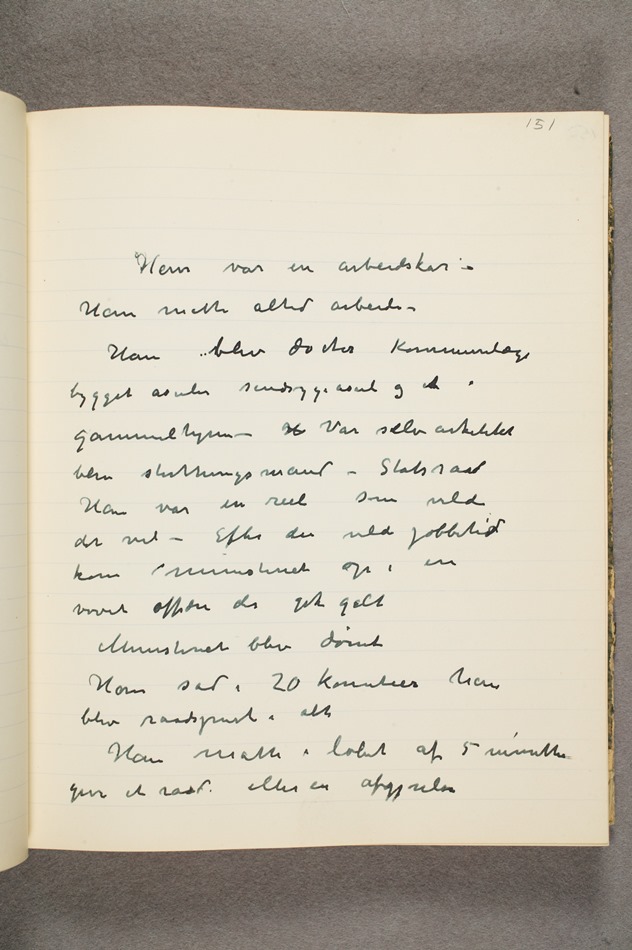 151
Han var en arbeidskar –
Han måtte altid arbeide –
Han blev doctor Kommunelæge
bygget asyler sindsygeasul og et
gammelhjem – Var selv arkitekt
blev stortingsmand – Statsraad
Han var en reel som vilde
det vel – Efter den vilde jobbetid
kom ministeriet op i en
vovet affære der gik galt
Ministeriet blev dømt
Han sad i 20 Komiteer han
blev raadspurt i alt
Han måtte i løbet af 5 minutter
give et raad. eller en afgjørelse